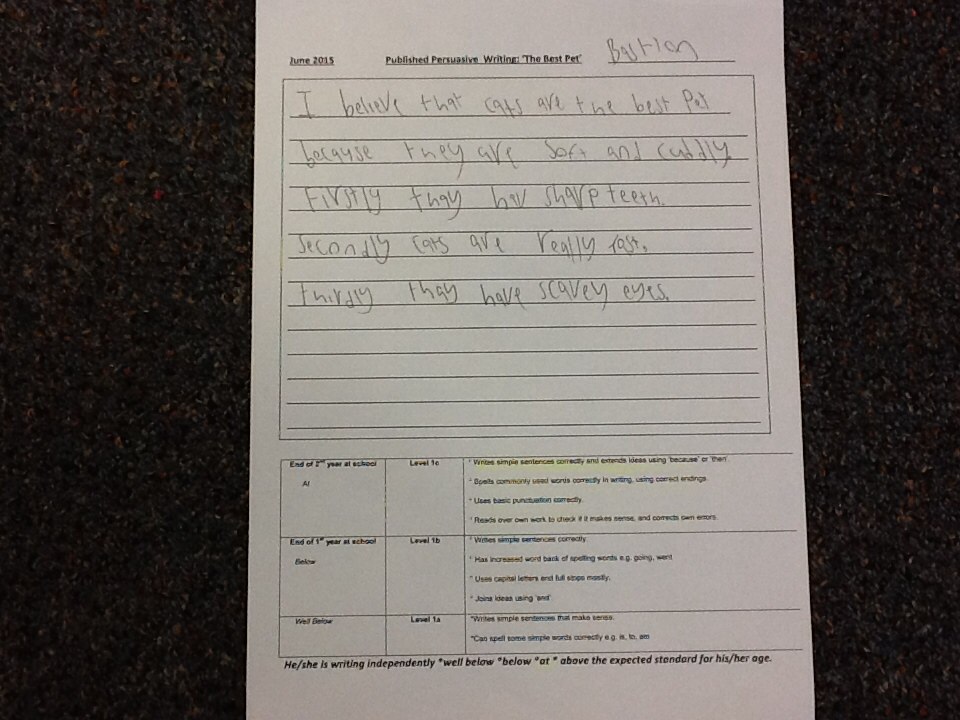 June 2015 Published Persuasive Writing: 'The Best Pet' Bastian
I believe that cats are the best Pet
because they are Soft and cuddly.
Firstly thay hav sharp teeth.
Secondly cats are really fast.
thirdly thay have scarey eyes.
End of 2nd year at school
At
Level 1c
* Writes simple sentences correctly and extends ideas using 'because' or 'then'.
* Spells commonly used words correctly in writing, using correct endings.
* Uses basic punctuation correctly.
* Reads over own work to check if it makes sense, and corrects own errors.
End of 1st year at school
Below
Level 1b
* Writes simple sentences correctly.
* Has increased word bank of spelling words e.g. going, went
* Uses capital letters and full stops mostly.
* Joins ideas using 'and'.
Well Below
Level 1a
*Writes simple sentences that make sense.
*Can spell some simple words correctly e.g. is, to, am
He/she is writing independently *well below *below *at * above the expected standard for his/her age.